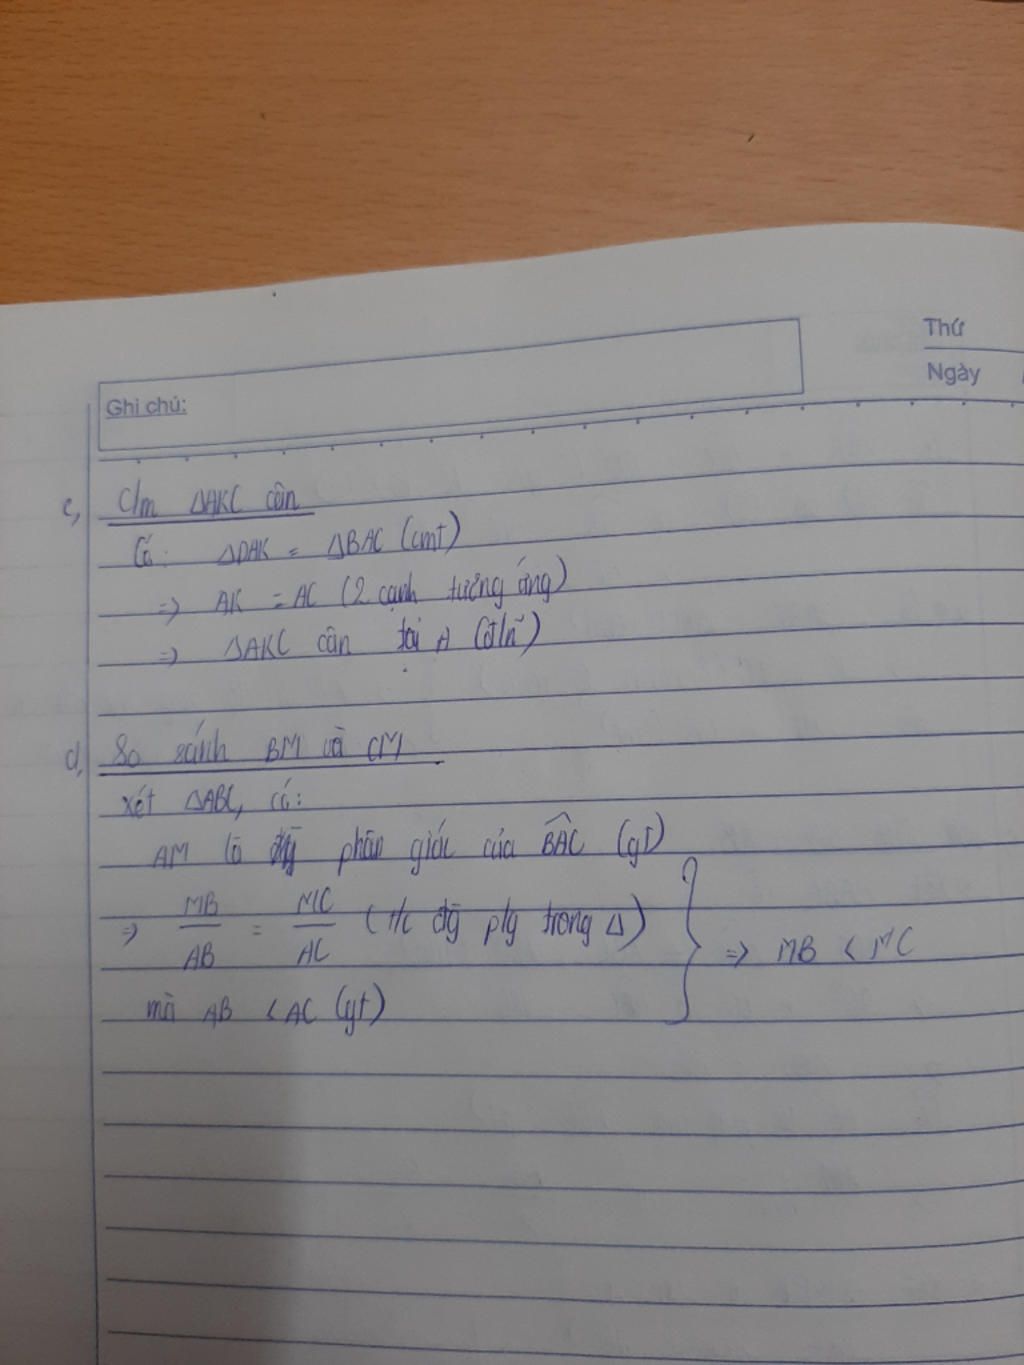 Thứ
Ngày
Ghi chú:
c, C/m ΔAKC cân
Có: ΔDAK = ΔBAC (cmt)
=> AK = AC (2 cạnh tương ứng)
=> ΔAKC cân tại A (đ/n)
d, So sánh BM và CM
xét ΔABC, có:
AM là phân giác của \widehat{BAC} (gt)
=> MB/AB = MC/AC (t/c đg p/g trong Δ)
mà AB < AC (gt)
=> MB < MC